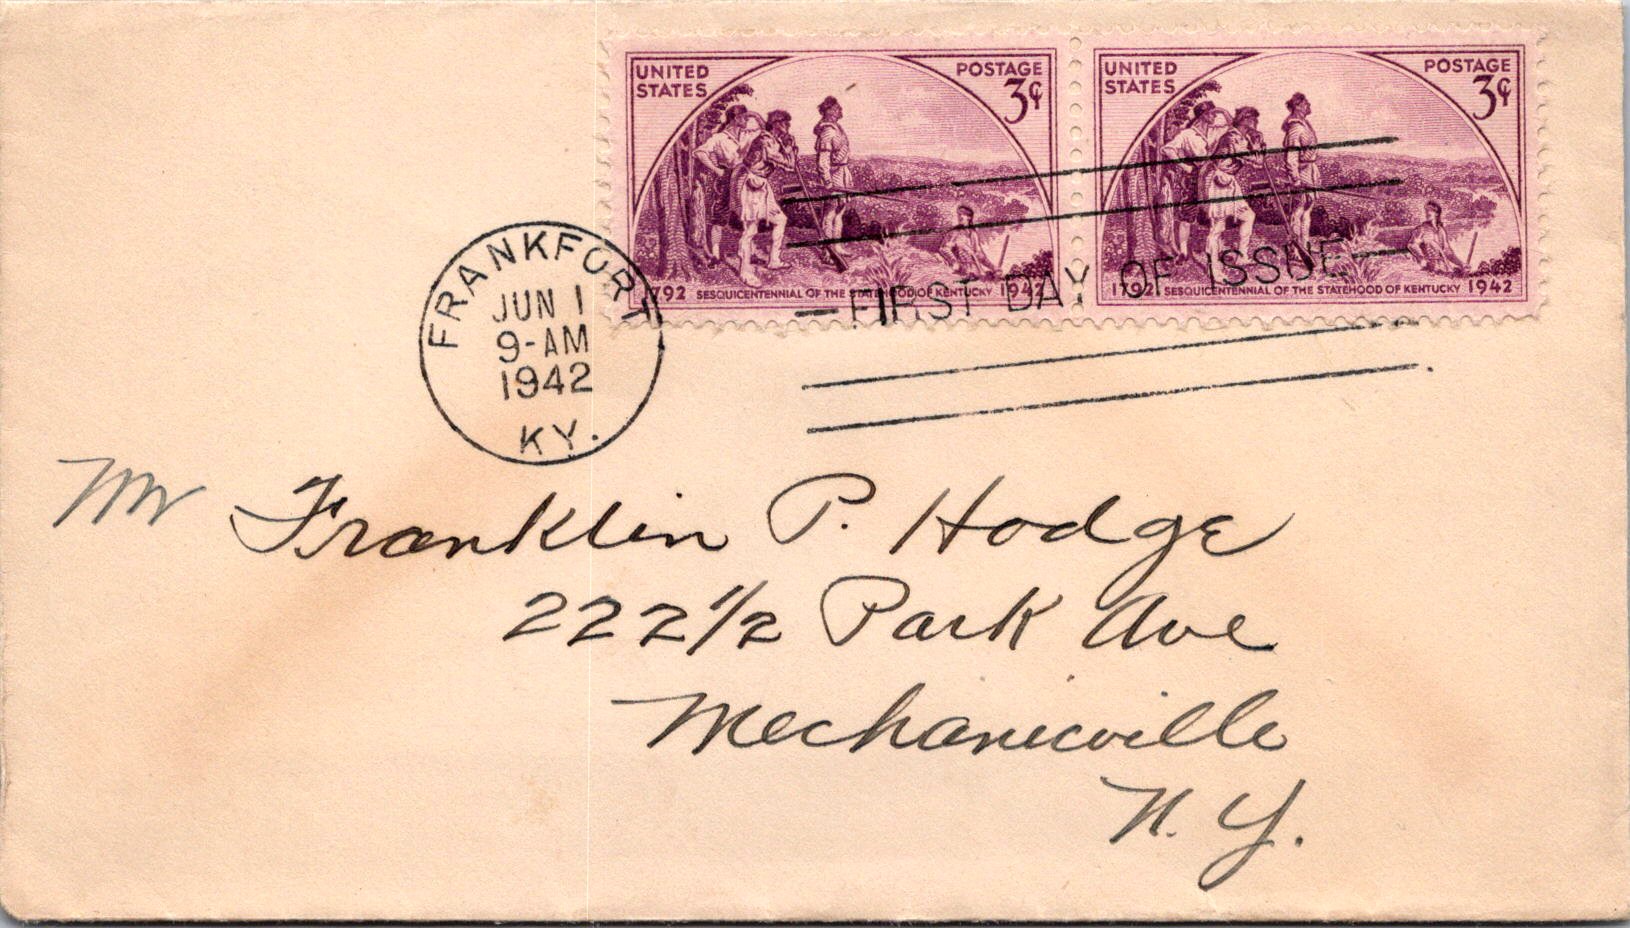 UNITED STATES
POSTAGE
3¢
1792 SESQUICENTENNIAL OF THE STATEHOOD OF KENTUCKY 1942
UNITED STATES
POSTAGE
3¢
1792 SESQUICENTENNIAL OF THE STATEHOOD OF KENTUCKY 1942
FRANKFORT
JUN 1
9-AM
1942
KY.
FIRST DAY OF ISSUE
Mr Franklin P. Hodge
222 1/2 Park Ave
Mechanicville
N. Y.